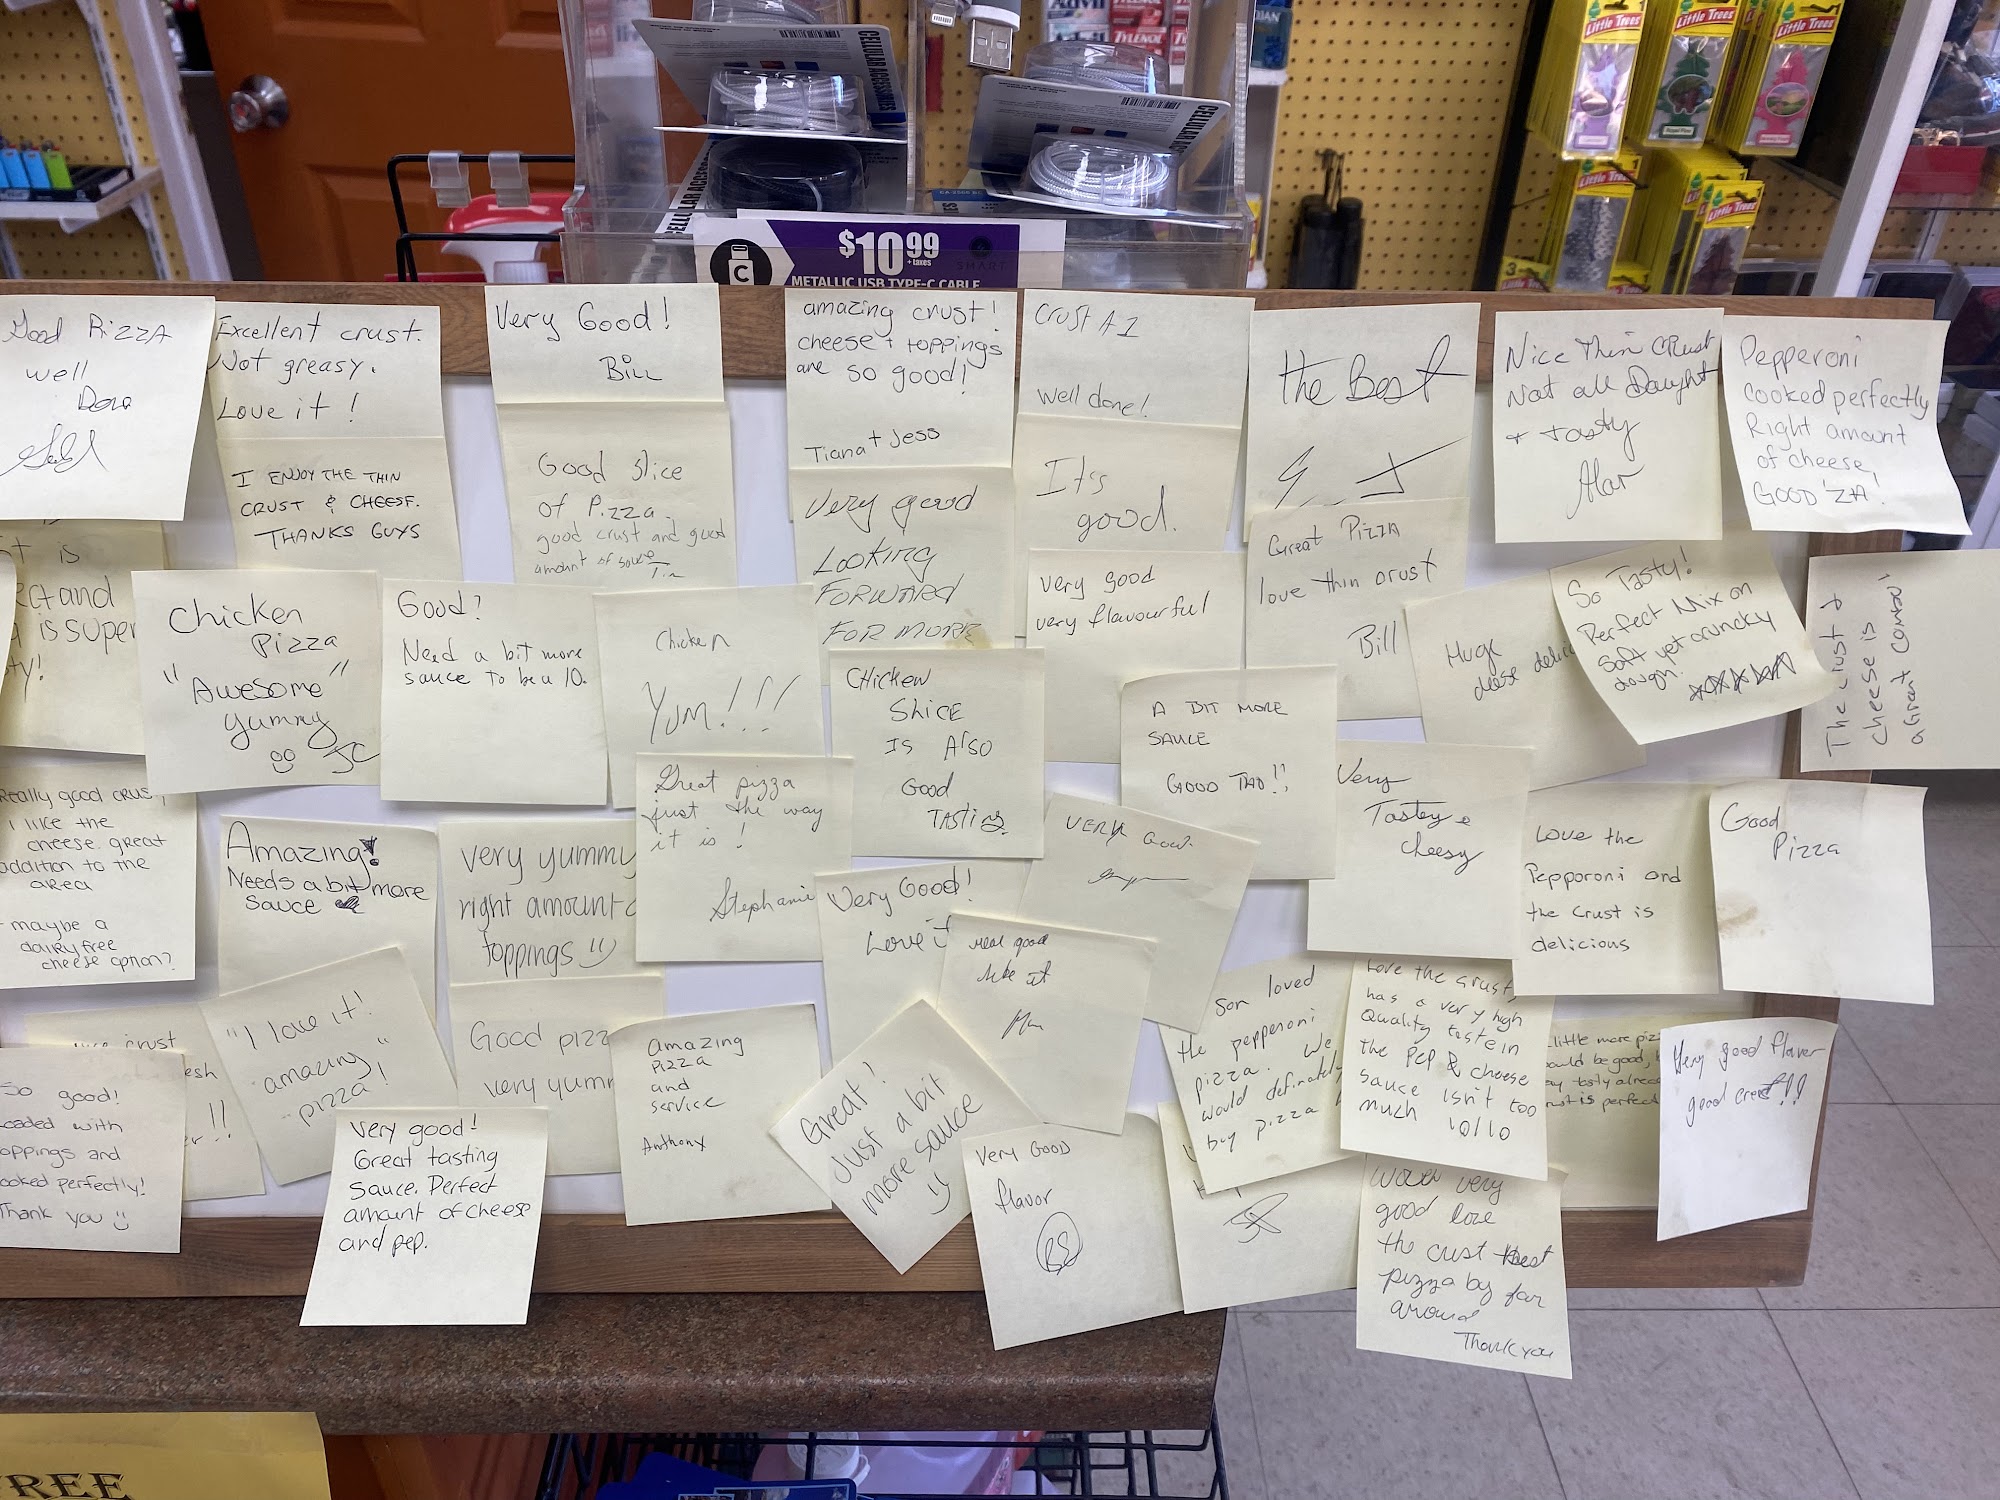 Advil
TYLENOL
CELLULAR ACCESSORIES
CELLULAR ACCESSORIES
Little Trees
Little Trees
Little Trees
Royal Pine
Little Trees
Little Trees
$10.99
+ taxes
C
SMART
METALLIC USB TYPE-C CABLE
Good PizzA
well
Done
Excellent crust.
Not greasy.
Love it!
Very Good!
Bill
amazing crust!
cheese + toppings
are so good!
Tiana + Jess
Crust A1
Well done!
the Best
Nice Thin CRust
Not all Daught
+ tasty
Alar
Pepperoni
cooked perfectly
Right amount
of cheese,
GOOD 'ZA!
I ENJOY THE THIN
CRUST & CHEESE.
THANKS GUYS
Good Slice
of Pizza.
good crust and good
amount of sauce
Very good
Looking
FORWARD
FOR MORE
It's
good.
Great PizzA
love thin crust
Bill
very good
very flavourful
So Tasty!
Perfect Mix on
Soft yet crunchy
dough.
Huge
The crust &
cheese is
a Great combo!
is
and
is super
Chicken
Pizza
"Awesome"
yummy
JC
Good?
Need a bit more
sauce to be a 10.
Chicken
Yum!!!
CHicken
Slice
is Also
Good
TASTing.
A BIT MORE
SAUCE
GOOD THO!!
Very
Tastey &
cheesy
Love the
Pepporoni and
the crust is
delicious
Good
Pizza
Really good crust,
I like the
cheese. great
addition to the
area
maybe a
dairy free
cheese option?
Amazing!
Needs a bit more
sauce
very yummy
right amount
toppings
Great pizza
just the way
it is!
Stephanie
Very Good!
Love it
VERY Good.
real good
like it
crust
"I love it!
amazing"
pizza!
Good pizz
very yumm
Amazing
Pizza
and
service
Anthony
Great!
Just a bit
more sauce
Son loved
the pepperoni
pizza. We
would definately
buy pizza
Love the crust,
has a very high
Quality taste in
the pep & cheese
sauce isn't too
much 10/10
Little more
be good,
is perfect
Very good flaver
good crest!!
So good!
Loaded with
toppings and
cooked perfectly!
Thank you
Very good!
Great tasting
sauce. Perfect
amount of cheese
and pep.
Very GOOD
flavor
very
good love
the crust best
pizza by far
around
Thank you
FREE